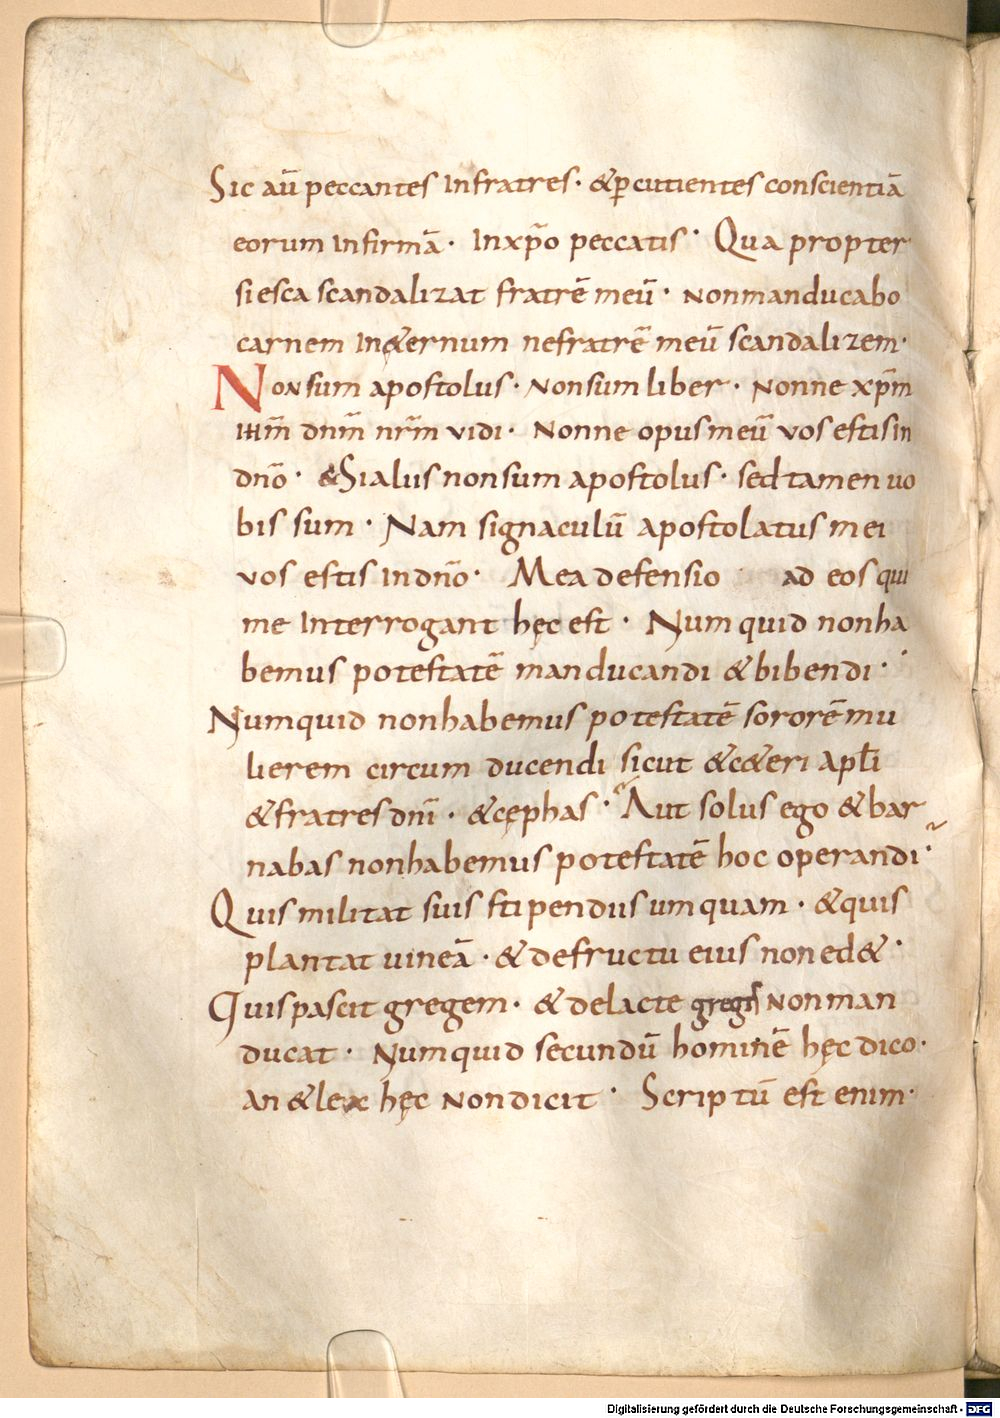 Sic aū peccantes Infratres · &ꝑcutientes conscientiā
eorum Infirmā · Inxp̄o peccatis · Qua propter
siesca scandalizat fratrē meū · Nonmanducabo
carnem In&ernum nefratrē meū scandalizem ·
Nonsum apostolus · Nonsum liber · Nonne xp̄m
ihm̄ dnm̄ nrm̄ vidi · Nonne opusmeū vos estisin
dn̄o · &Sialiis nonsum apostolus · sed tamen uo
bis sum · Nam signaculū apostolatus mei
vos estis Indn̄o · Mea defensio ad eos qui
me Interrogant hęc est · Numquid nonha
bemus potestatē manducandi & bibendi ·
Numquid nonhabemus potestatē sororē mu
lierem circum ducendi sicut &c&eri Apłi
&fratres dnī · &cęphas · Aut solus ego & bar
nabas nonhabemus potestatē hoc operandi ·
Quis militat suis stipendiis umquam · &quis
plantat uineā · & defructu eius non ed& ·
Quis pascit gregem · & delacte gregis Nonman
ducat · Numquid secundū hominē hęc dico ·
an & lex hęc Nondicit · Scriptū est enim ·
Digitalisierung gefördert durch die Deutsche Forschungsgemeinschaft - DFG